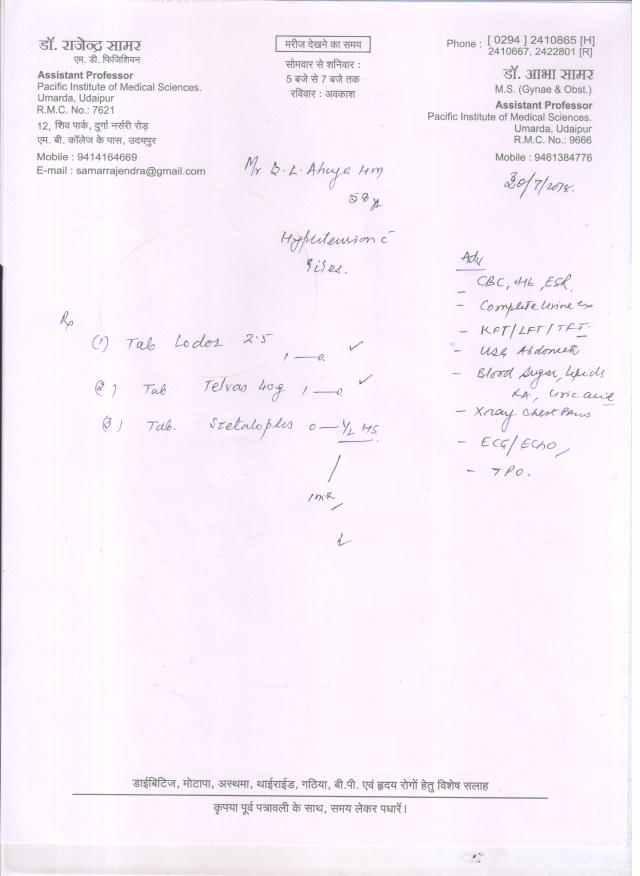 डॉ. राजेन्द्र सामर
एम. डी. फिजिशियन
Assistant Professor
Pacific Institute of Medical Sciences.
Umarda, Udaipur
R.M.C. No.: 7621
12, शिव पार्क, दुर्गा नर्सरी रोड़
एम. बी. कॉलेज के पास, उदयपुर
Mobile : 9414164669
E-mail : samarrajendra@gmail.com
मरीज देखने का समय
सोमवार से शनिवार :
5 बजे से 7 बजे तक
रविवार : अवकाश
Phone : [ 0294 ] 2410865 [H]
2410667, 2422801 [R]
डॉ. आभा सामर
M.S. (Gynae & Obst.)
Assistant Professor
Pacific Institute of Medical Sciences.
Umarda, Udaipur
R.M.C. No.: 9666
Mobile : 9461384776
Mr B. L. Ahuja
58
Hypertension
Rx
(1) Tab Lodoz 2.5
1—0
(2) Tab Telvas 40g 1—0
(3) Tab. 0—1/2 HS
Adv
- CBC, Hb, ESR
- Complete Urine Ex
- KFT/LFT/TFT
- USG Abdomen
- Blood Sugar, Lipids
RA, Uric acid
- Xray Chest
- ECG/ECHO
- TPO.
डाईबिटिज, मोटापा, अस्थमा, थाईराईड, गठिया, बी.पी. एवं हृदय रोगों हेतु विशेष सलाह
कृपया पूर्व पत्रावली के साथ, समय लेकर पधारें।